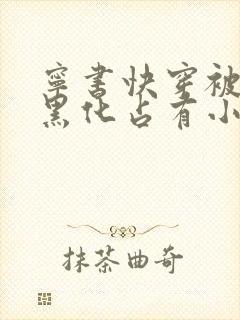 寧書快穿被
黑化占有小
抹茶曲奇